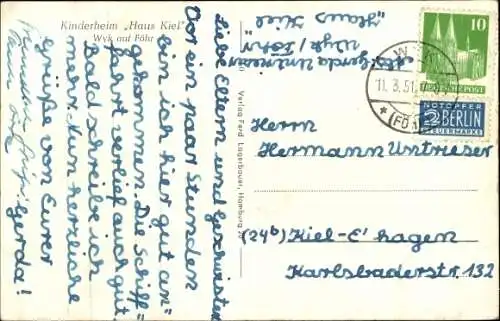 Kinderheim „Haus Kiel"
Wyk auf Föhr
Liebe Eltern und Geschwister
Vor ein paar Stunden
bin ich hier gut an=
gekommen. Die Schiff=
fahrt verlief auch gut.
Bald schreibe ich
mehr. Nun herzliche
Grüße von Eurer
Gerda!
Verlag Ferd. Lagerbauer, Hamburg
Abs. Gerda Untrieser
Wyk / Föhr
"Haus Kiel"
WYK
11.3.51
(FÖHR)
10
DEUTSCHE POST
NOTOPFER
2 BERLIN
STEUERMARKE
Herrn
Hermann Untrieser
(24b) Kiel-E' hagen
Karlsbaderstr. 132